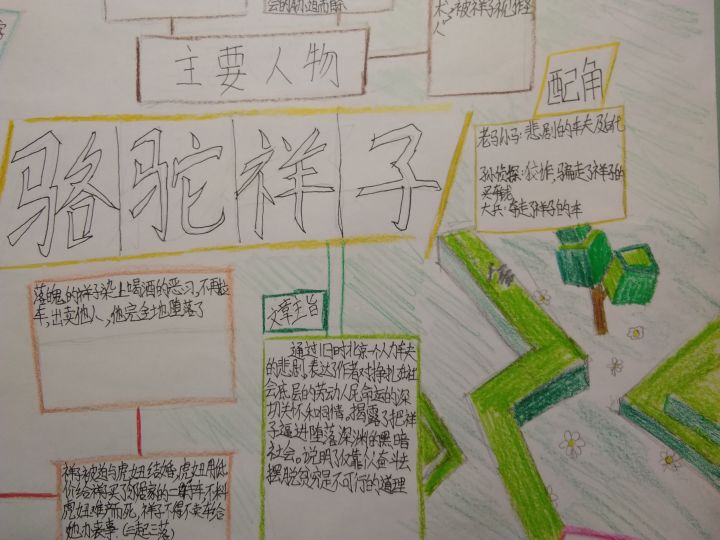 主要人物
人"
配角
骆驼祥子
老马小马:悲剧的车夫及后代
孙侦探:狡诈,骗走了祥子的
买车钱
大兵:夺走了祥子的车
落魄的祥子染上喝酒的恶习,不再拉
车,出卖他人,他完全地堕落了
文章主旨
通过旧时北京一个人力车夫
的悲剧,表达了作者对挣扎在社
会底层的劳动人民命运的深
切关怀和同情。揭露了把祥
子逼进堕落深渊的黑暗
社会。说明了仅靠个人奋斗去
摆脱贫穷是不可行的道理
祥子被迫与虎妞结婚,虎妞用低
价给祥子买了邻居家的二手车不料
虎妞难产而死,祥子不得不卖车给
她办丧事(三起三落)